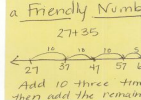 a Friendly Numb
27+35
10 10 10 5
27 37 47 57 6
Add 10 three tim
then add the remain